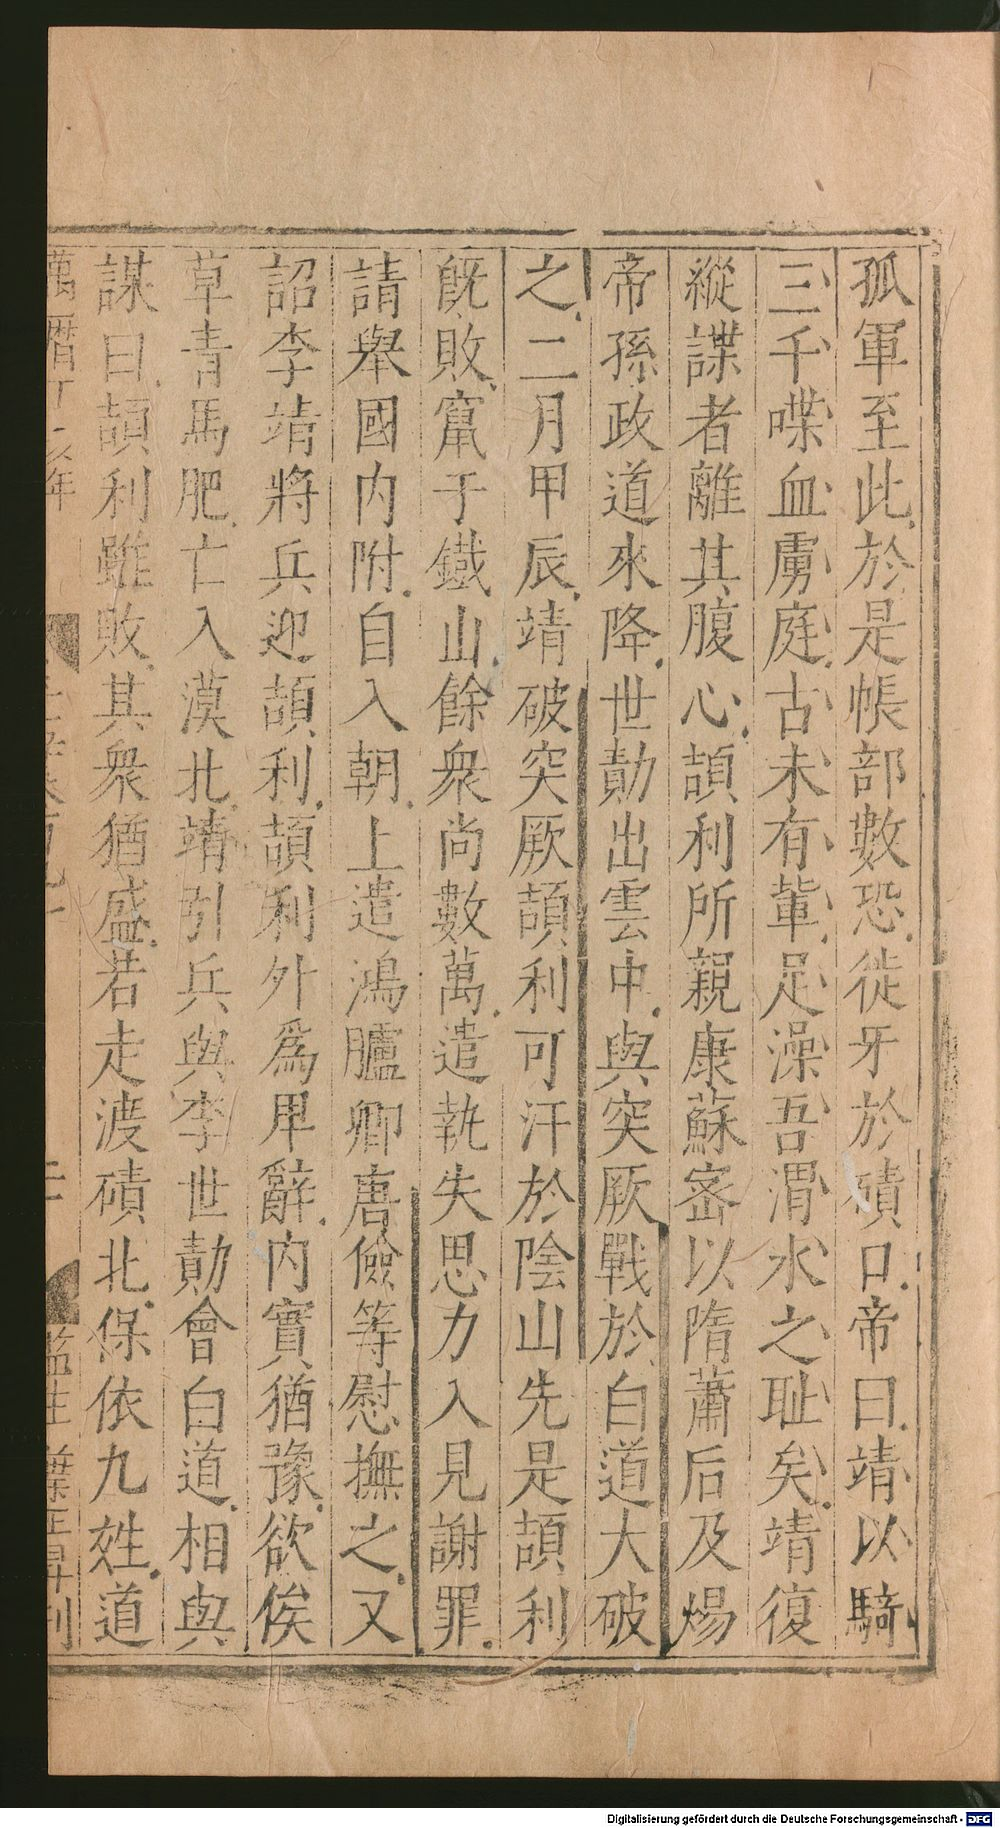 孤軍至此於是帳部數恐徙牙於磧口帝曰靖以騎
三千喋血虜庭古未有輩足澡吾渭水之耻矣靖復
縱諜者離其腹心頡利所親康蘇宻以隋蕭后及煬
帝孫政道來降世勣出雲中與突厥戰於白道大破
之二月甲辰靖破突厥頡利可汗於陰山先是頡利
旣敗竄于鐡山餘衆尚數萬遣執失思力入見謝罪
請舉國内附自入朝上遣鴻臚卿唐儉等慰撫之又
詔李靖將兵迎頡利頡利外爲卑辭内實猶豫欲俟
草青馬肥亡入漠北靖引兵與李世勣會白道相與
謀曰頡利雖敗其衆猶盛若走渡磧北保依九姓道
萬曆丁 年 監生葉 昇刊
Digitalisierung gefördert durch die Deutsche Forschungsgemeinschaft - DFG